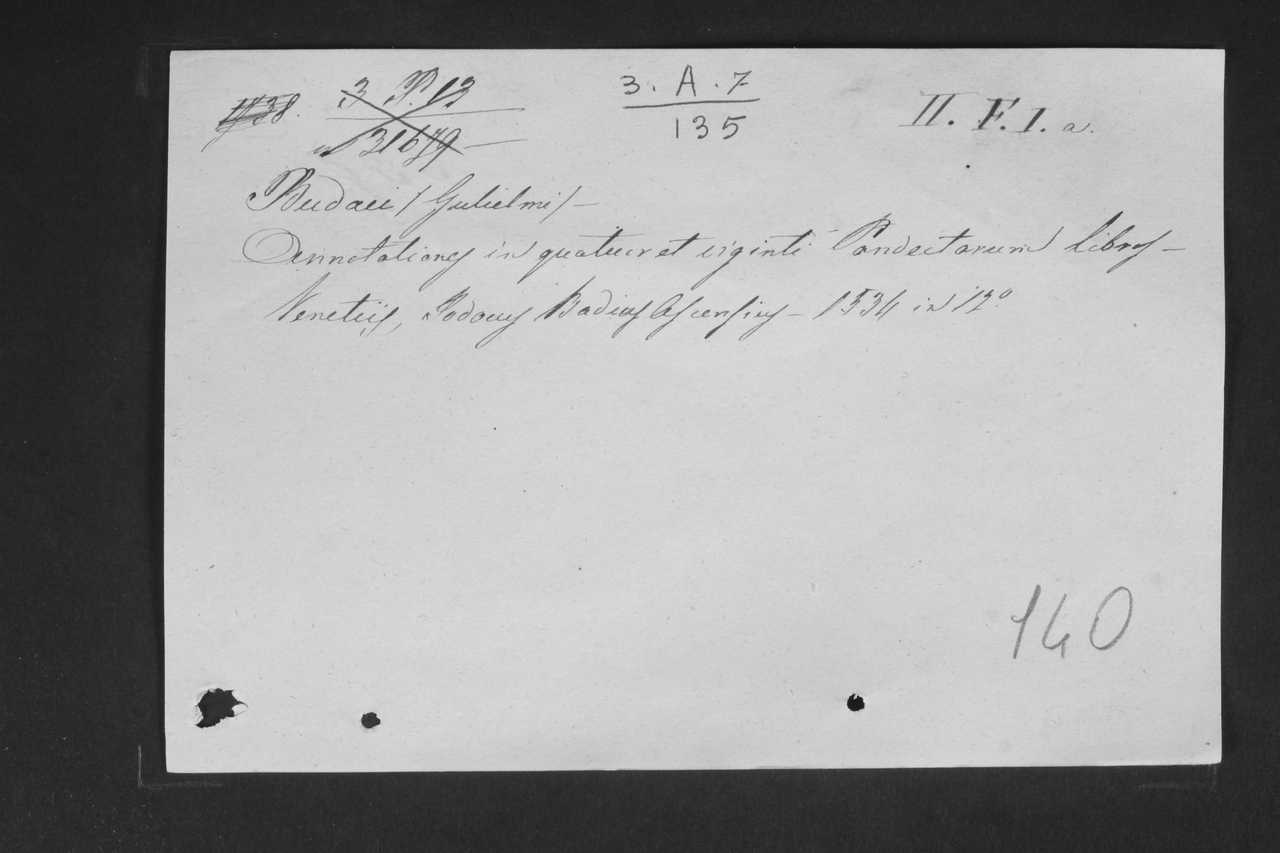 3 P. 13
31679
3. A. 7
135
II. F. 1. a.
Budaei / Gulielmi / –
Annotationes in quatuor et viginti Pandectarum libros –
Venetiis, Jodocus Badius Ascensius – 1534 in 12º
140